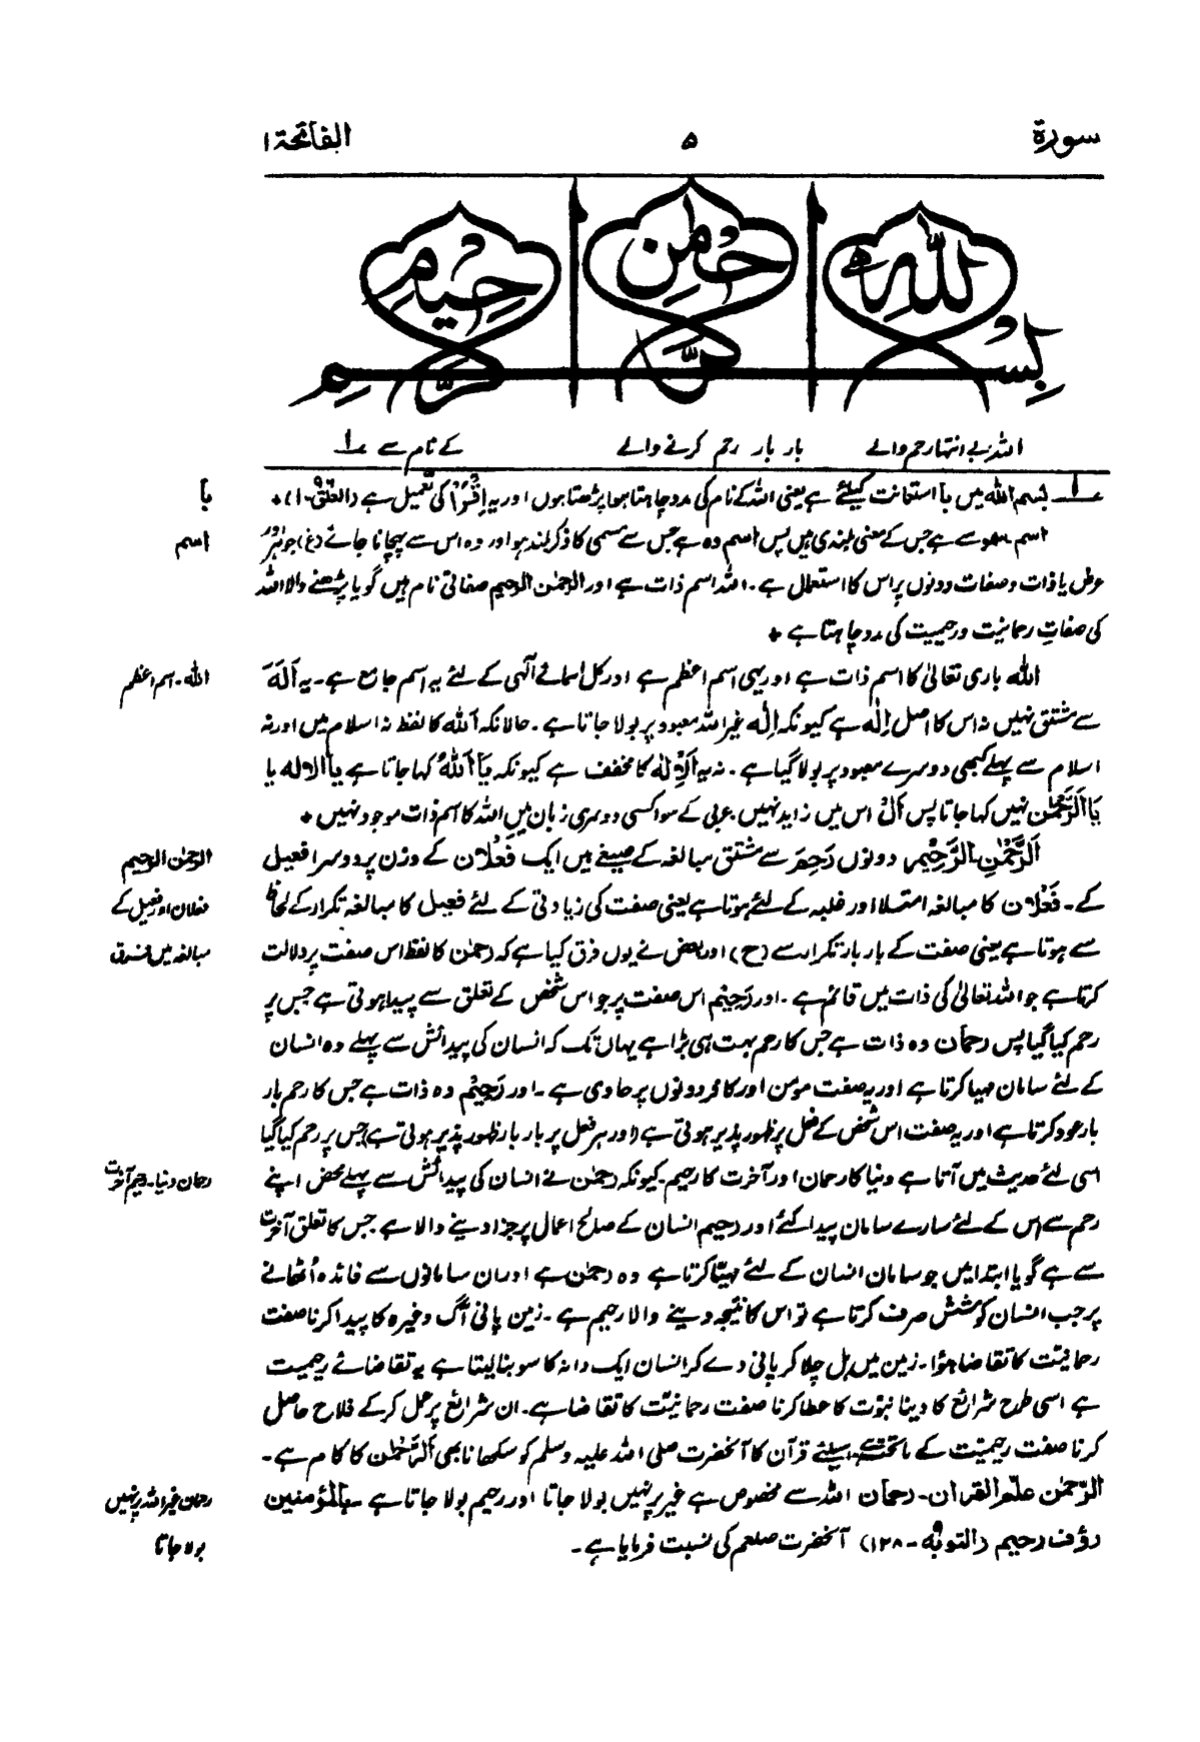 سورۃ ۵ الفاتحۃ ۱
بِسْمِ اللّٰهِ الرَّحْمٰنِ الرَّحِیْمِ
اللہ بے انتہا رحم والے بار بار رحم کرنے والے کے نام سے ۱
۱ بسم اللہ میں با استعانت کیلئے ہے یعنی اللہ کے نام کی مدد چاہتا ہوا پڑھتا ہوں اور یہ اِقْرَأْ کی تعمیل ہے (العلق-۱)٭
با
اسم سموسے ہے جس کے معنی بلندی ہیں پس اسم وہ ہے جس سے مسمی کا ذکر بلند ہو اور وہ اس سے پہچانا جائے (غ) جوہر
اسم
عرض یا ذات وصفات دونوں پر اس کا استعمال ہے۔ اللہ اسم ذات ہے اور الرحمٰن الرحیم صفاتی نام ہیں گویا پڑھنے والا اللہ
کی صفاتِ رحمانیت ورحیمیت کی مدد چاہتا ہے ٭
اللہ باری تعالیٰ کا اسم ذات ہے اور یہی اسم اعظم ہے اور کل اسمائے الٰہی کے لئے یہ اسم جامع ہے۔ یہ اَلَہَ
اللہ۔ اسم اعظم
سے مشتق نہیں نہ اس کا اصل اِلٰہ ہے کیونکہ اِلٰہ غیر اللہ معبود پر بولا جاتا ہے۔ حالانکہ اللہ کا لفظ نہ اسلام میں اور نہ
اسلام سے پہلے کبھی دوسرے معبود پر بولا گیا ہے۔ نہ یہ اَلْاِلٰہ کا مخفف ہے کیونکہ یَا اَللّٰہُ کہا جاتا ہے یا الالہ یا
یَا اَلرَّحْمٰن نہیں کہا جاتا پس اَلْ اس میں زاید نہیں عربی کے سوا کسی دوسری زبان میں اللہ کا اسم ذات موجود نہیں ٭
اَلرَّحْمٰنِ الرَّحِیْمِ دونوں رَحِمَ سے مشتق مبالغہ کے صیغے ہیں ایک فَعْلَان کے وزن پر دوسرا فعیل
الرحمٰن الرحیم
کے۔ فَعْلَان کا مبالغہ امتلا اور غلبہ کے لئے ہوتا ہے یعنی صفت کی زیادتی کے لئے فعیل کا مبالغہ تکرار کے لحاظ
فعلان اور فعیل کے
سے ہوتا ہے یعنی صفت کے بار بار تکرار سے (ح) اور بعض نے یوں فرق کیا ہے کہ رحمٰن کا لفظ اس صفت پر دلالت
مبالغہ میں فرق
کرتا ہے جو اللہ تعالیٰ کی ذات میں قائم ہے۔ اور رَحِیْم اس صفت پر جو اس شخص کے تعلق سے پیدا ہوتی ہے جس پر
رحم کیا گیا پس رحمان وہ ذات ہے جس کا رحم بہت ہی بڑا ہے یہاں تک کہ انسان کی پیدائش سے پہلے وہ انسان
کے لئے سامان مہیا کرتا ہے اور یہ صفت مومن اور کافر دونوں پر حاوی ہے۔ اور رَحِیْم وہ ذات ہے جس کا رحم بار
بار عود کرتا ہے اور یہ صفت اس شخص کے فعل پر ظہور پذیر ہوتی ہے (اور ہر فعل پر بار بار ظہور پذیر ہوتی ہے) جس پر رحم کیا گیا
اسی لئے حدیث میں آتا ہے دنیا کا رحمان اور آخرت کا رحیم۔ کیونکہ رحمٰن نے انسان کی پیدائش سے پہلے محض اپنے
رحمان دنیا۔ رحیم آخرت
رحم سے اس کے لئے سارے سامان پیدا کئے اور رحیم انسان کے صالح اعمال پر جزا دینے والا ہے جس کا تعلق آخرت
سے ہے گویا ابتدا میں جو سامان انسان کے لئے مہیا کرتا ہے وہ رحمٰن ہے اور ان سامانوں سے فائدہ اُٹھانے
پر جب انسان کوشش صرف کرتا ہے تو اس کا نتیجہ دینے والا رحیم ہے۔ زمین پانی آگ وغیرہ کا پیدا کرنا صفت
رحمانیت کا تقاضا ہوٗا۔ زمین میں ہل چلا کر پانی دے کر انسان ایک دانہ کا سو بنا لیتا ہے یہ تقاضائے رحیمیت
ہے اسی طرح شرائع کا دینا نبوّت کا عطا کرنا صفت رحمانیّت کا تقاضا ہے۔ ان شرائع پر عمل کرکے فلاح حاصل
کرنا صفت رحیمیّت کے ماتحت ہے اسیلئے قرآن کا آنحضرت صلی اللہ علیہ وسلم کو سکھانا بھی اَلرَّحْمٰن کا کام ہے۔
الرّحمٰن علّم القراٰن۔ رحمان اللہ سے مخصوص ہے غیر پر نہیں بولا جاتا اور رحیم بولا جاتا ہے بالمؤمنین
رحمان غیر اللہ پر نہیں
رؤف رحیم (التوبۃ۹-۱۲۸) آنحضرت صلعم کی نسبت فرمایا ہے۔
بولا جاتا